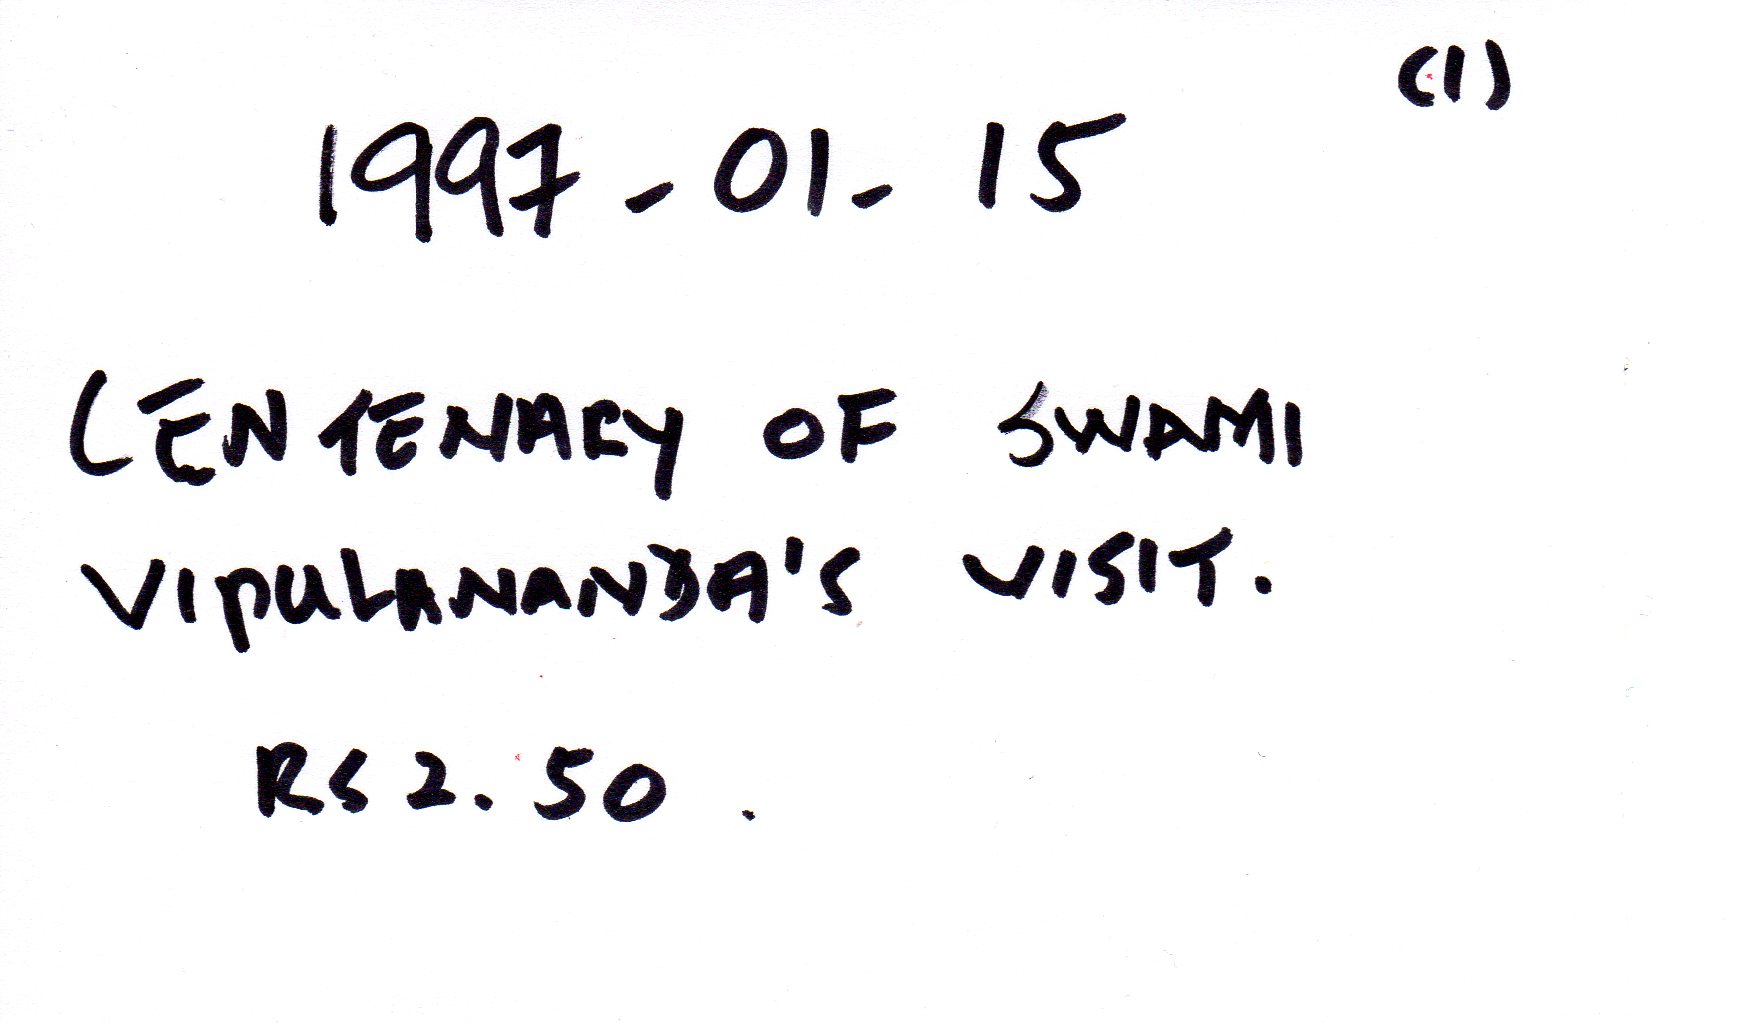 (1)
1997-01-15
CENTENARY OF SWAMI
VIPULANANDA'S VISIT.
RS 2.50.